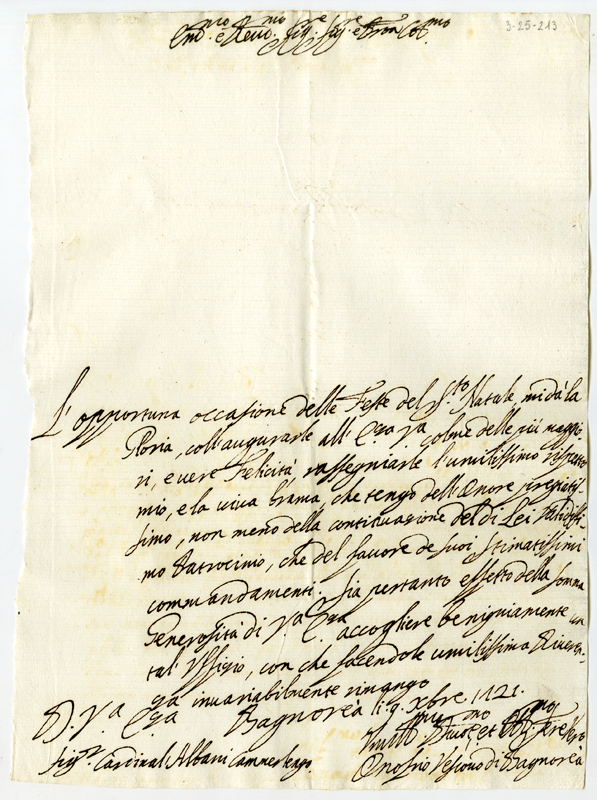 3-25-213
Em.mo e Reu.mo Sig.re Sig.re e Pron Col.mo
L'opportuna occasione delle Feste del S.to Natale mi dà la
Gloria, coll'augurarle all' E.za V.ra colme delle più maggio-
ri, e uere Felicità, rassegniarle l'umilissimo rispetto
mio, e la uiva brama, che tengo dell'Onore pregiatis-
simo, non meno della continuazione del di Lei validissi-
mo Patrocinio, che del fauore de suoi stimatissimi
commandamenti. Sia pertanto effetto della somma
Generosità di V.ra E.za accogliere benigniamente un
tal' Uffizio, con che facendole umilissima Riueren-
za inuariabilmente rimango
D. V.ra E.za Bagnorea li 9. Xbre 1721.
Sig.re Cardinal Albani Camerlengo
Onofrio Vescouo di Bagnorea